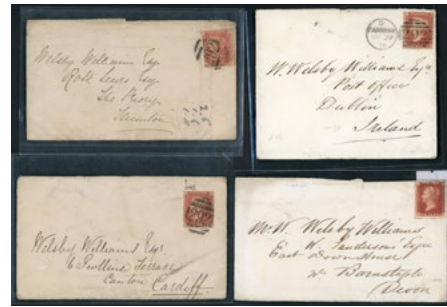 Welsby Williams Esq
Esq
The Priory
Taunton
W. Welsby Williams Esqre
Post office
Dublin
Ireland
Welsby Williams Esqr
6 Terrace
Canton
Cardiff
Mr W. Welsby Williams
E. W. Esqre
East Down House
Nr Barnstaple
Devon